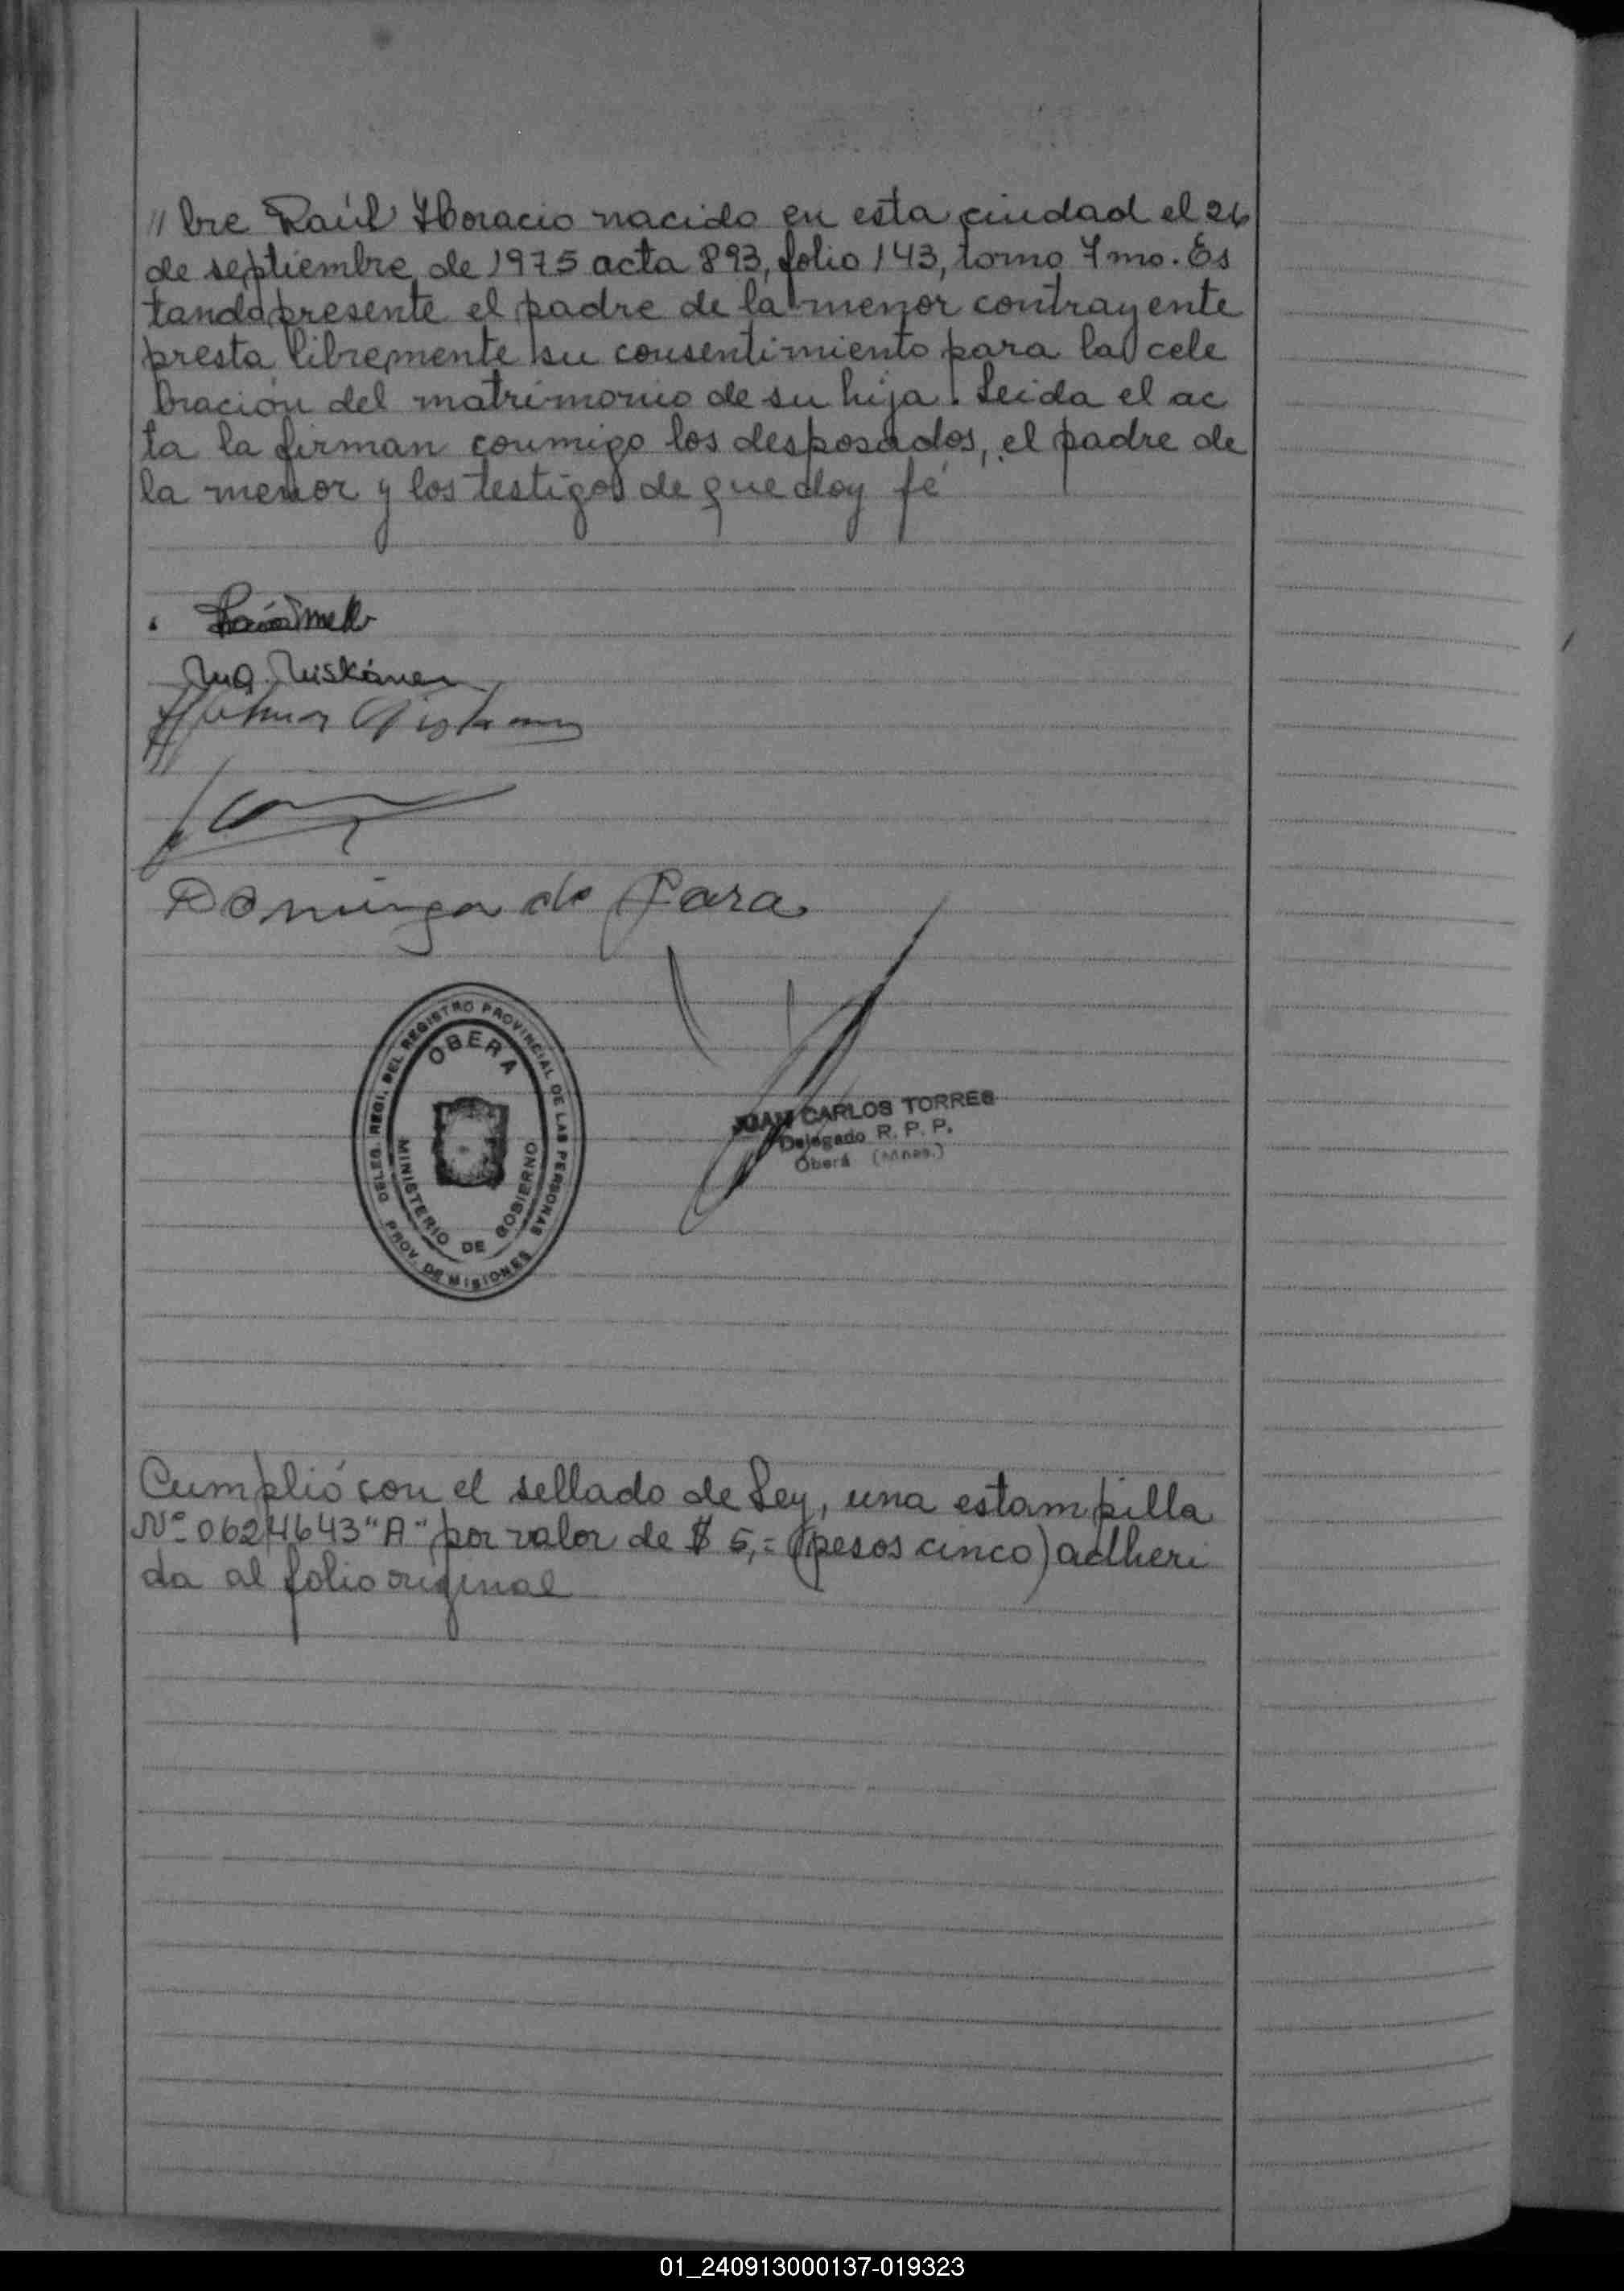 // bre Raúl Horacio nacido en esta ciudad el 26
de septiembre de 1975 acta 893, folio 143, tomo 7mo. Es
tando presente el padre de la menor contrayente
presta libremente su consentimiento para la cele
bración del matrimonio de su hija. Leida el ac
ta la firman conmigo los desposados, el padre de
la menor y los testigos de que doy fé
Ma. Niskánen
Dominga de Jara
DELEG. REGI. DEL REGISTRO PROVINCIAL DE LAS PERSONAS
OBERA
MINISTERIO DE GOBIERNO
PROV. DE MISIONES
JUAN CARLOS TORRES
Delegado R. P. P.
Oberá (Mnes.)
Cumplió con el sellado de Ley, una estampilla
Nº 0624643 "A" por valor de $ 5,= (pesos cinco) adheri
da al folio original
01_240913000137-019323